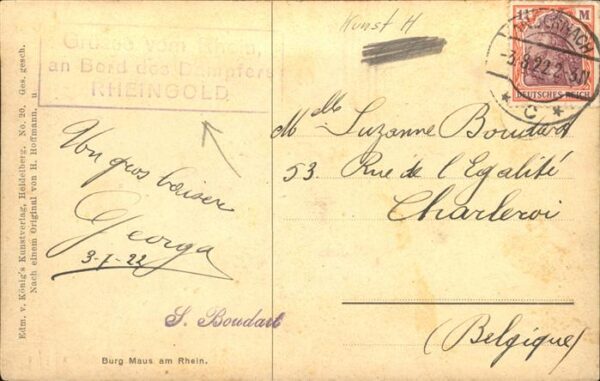 Kunst H
Grüsse vom Rhein,
an Bord des Dampfers
RHEINGOLD
1¼ M
ANDERNACH
-3.8.22 2-3N
* C *
DEUTSCHES REICH
Un gros baiser
Georga
3-7-22
S. Boudart
Burg Maus am Rhein.
Melle Suzanne Boudart
53. Rue de l'Egalité
Charleroi
(Belgique)
Edm. v. König's Kunstverlag, Heidelberg. No. 20. Ges. gesch.
Nach einem Original von H. Hoffmann. u